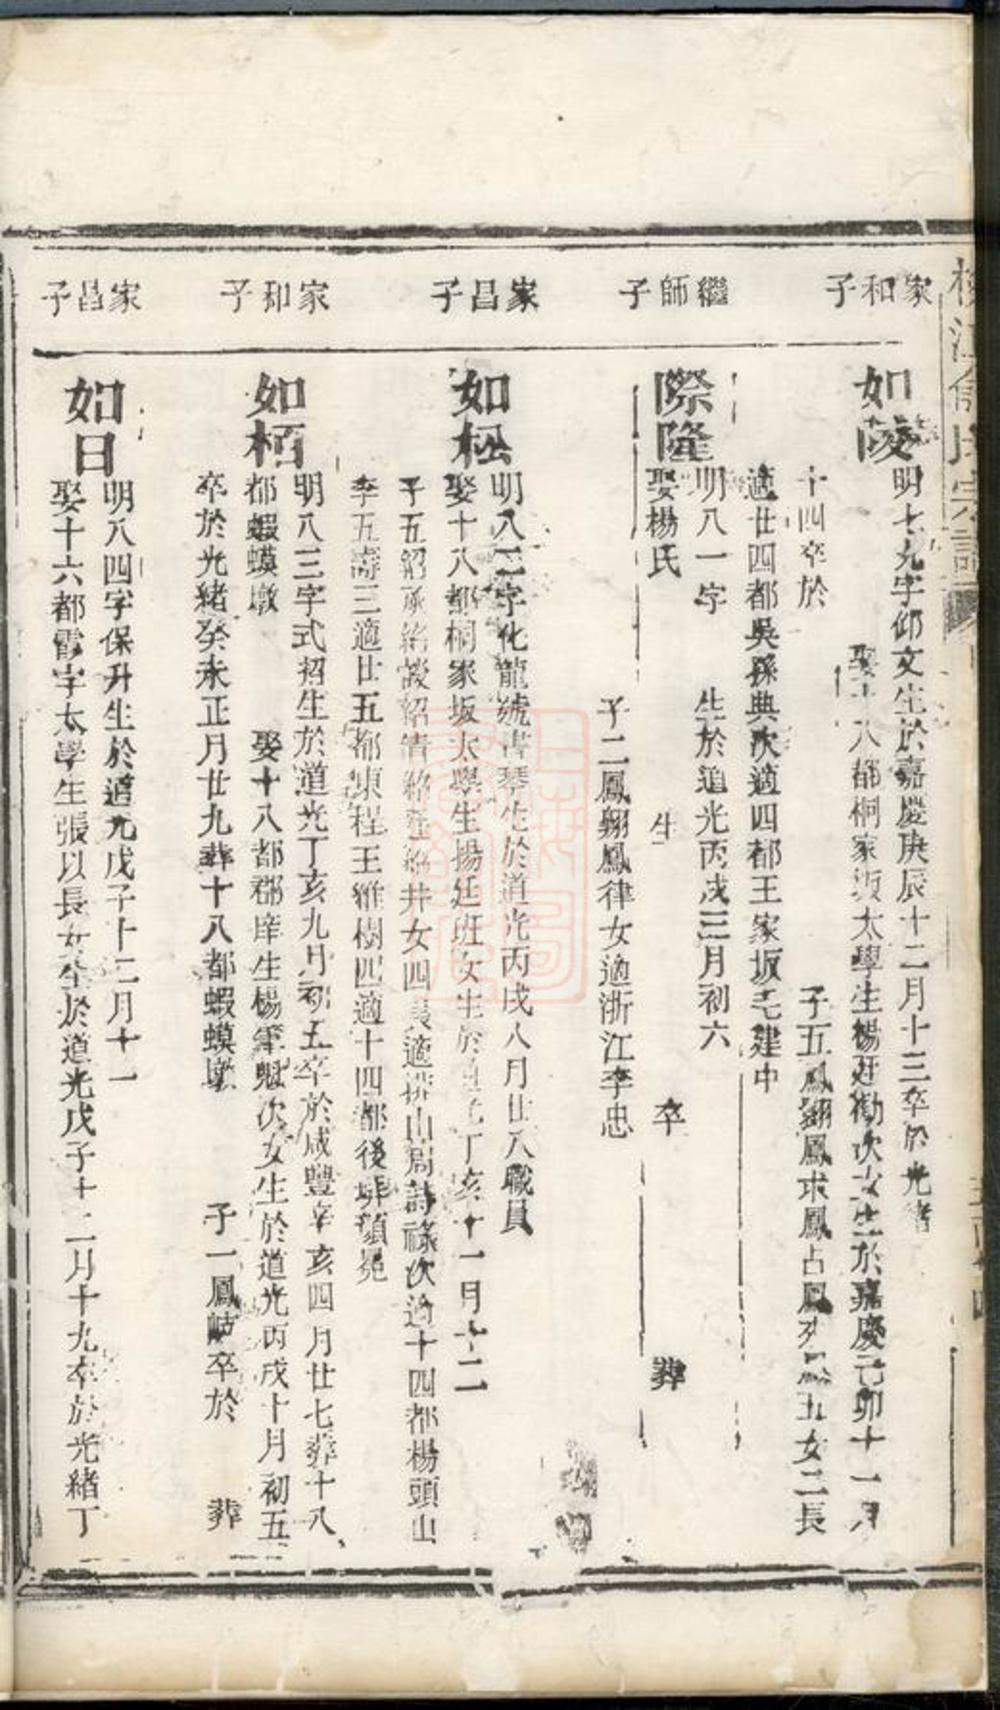 家和子
如陵
明七九字仰文生於嘉慶庚辰十二月十三卒於光緒
娶十八都桐家坂太學生楊廷勷次女生於嘉慶己卯十一月
十四卒於 子五鳳翽鳳求鳳占鳳五女二長
適廿四都吳孫典次適四都王家坂毛建中
繼師子
際隆
明八一字 生於道光丙戌三月初六
娶楊氏 生 卒 葬
子二鳳翔鳳律女適浙江李忠
家昌子
如松
明八二字化龍號書琴生於道光丙戌八月廿八職員
娶十八都桐家坂太學生揚廷班女生於道光丁亥十一月十二
子五紹承紹謨紹清紹紹井女四長適排山周詩祿次適十四都楊頭山
李五濤三適廿五都東程王維樹四適十四都後
家和子
如栢
明八三字式招生於道光丁亥九月初五卒於咸豐辛亥四月廿七葬十八
都蝦蟆墩 娶十八都郡庠生楊肇魁次女生於道光丙戌十月初五
卒於光緒癸未正月廿九葬十八都蝦蟆墩 子一鳳岐卒於 葬
家昌子
如日
明八四字保升生於道光戊子十二月十一
娶十六都霞字太學生張以長女生於道光戊子十二月十九卒於光緒丁